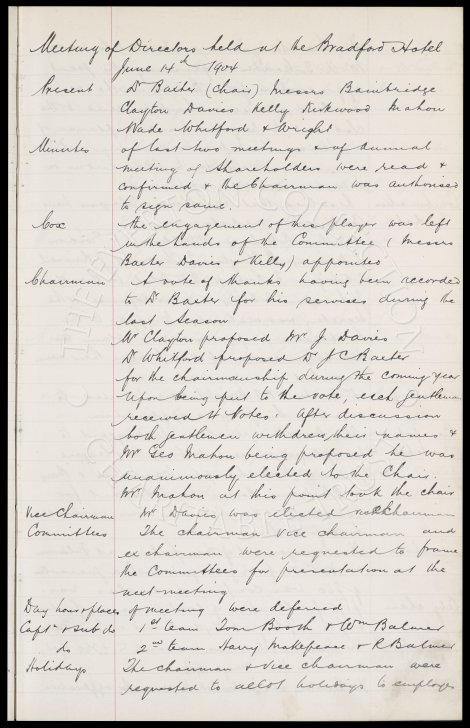 Meeting of Directors held at the Bradford Hotel
June 14th 1904
Present Dr Baxter (Chair) Messrs Bainbridge
Clayton Davies Kelly Kirkwood Mahon
Wade Whitford & Wright
Minutes of last two meetings & of annual
meeting of Shareholders were read &
confirmed & the Chairman was authorised
to sign same.
Cox the engagement of this player was left
in the hands of the Committee (Messrs
Baxter Davies & Kelly) appointed
Chairman A vote of thanks having been accorded
to Dr Baxter for his services during the
last Season
Mr Clayton proposed Mr J. Davies
Dr Whitford proposed Dr J C Baxter
for the chairmanship during the coming year
Upon being put to the vote, each gentleman
received 4 Votes. After discussion
both gentlemen withdrew their names &
Mr Geo Mahon being proposed he was
unanimously elected to the Chair.
Mr Mahon at this point took the chair
Vice Chairman Mr Davies was elected vice chairman
Committees The chairman vice chairman and
ex chairman were requested to frame
the Committees for presentation at the
next meeting
Day hour & places of meeting were deferred
Captn & sub do 1st team Tom Booth & Wm Balmer
do 2nd team Harry Makepeace & R Balmer
Holidays The chairman & vice chairman were
requested to allot holidays to employees